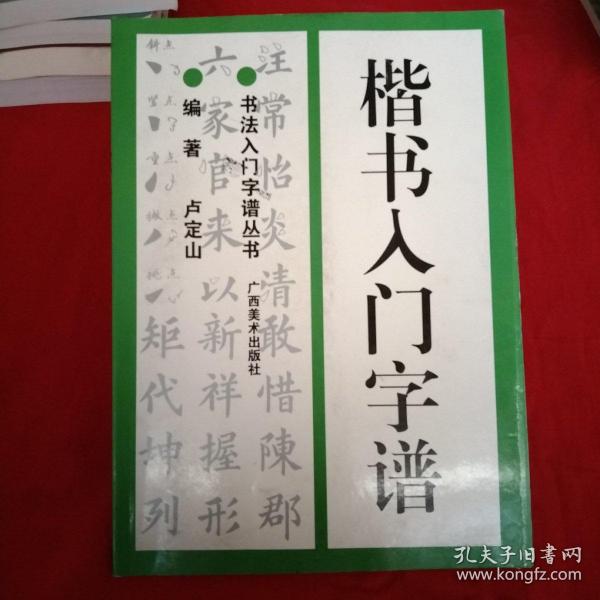 楷书入门字谱
书法入门字谱丛书
广西美术出版社
编著 卢定山
注常怡炎清敢惜陳郡
六家官来以新祥握形
斜点
竖点
点
撇点
挑点
矩代坤列
孔夫子旧书网
www.kongfz.com